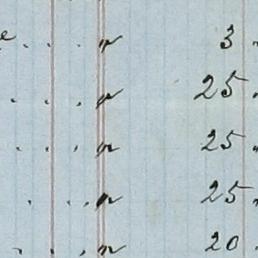 e . . . " 3 "
. . . " 25 "
. . . " 25 "
. . . " 25 "
. . . " 20 "